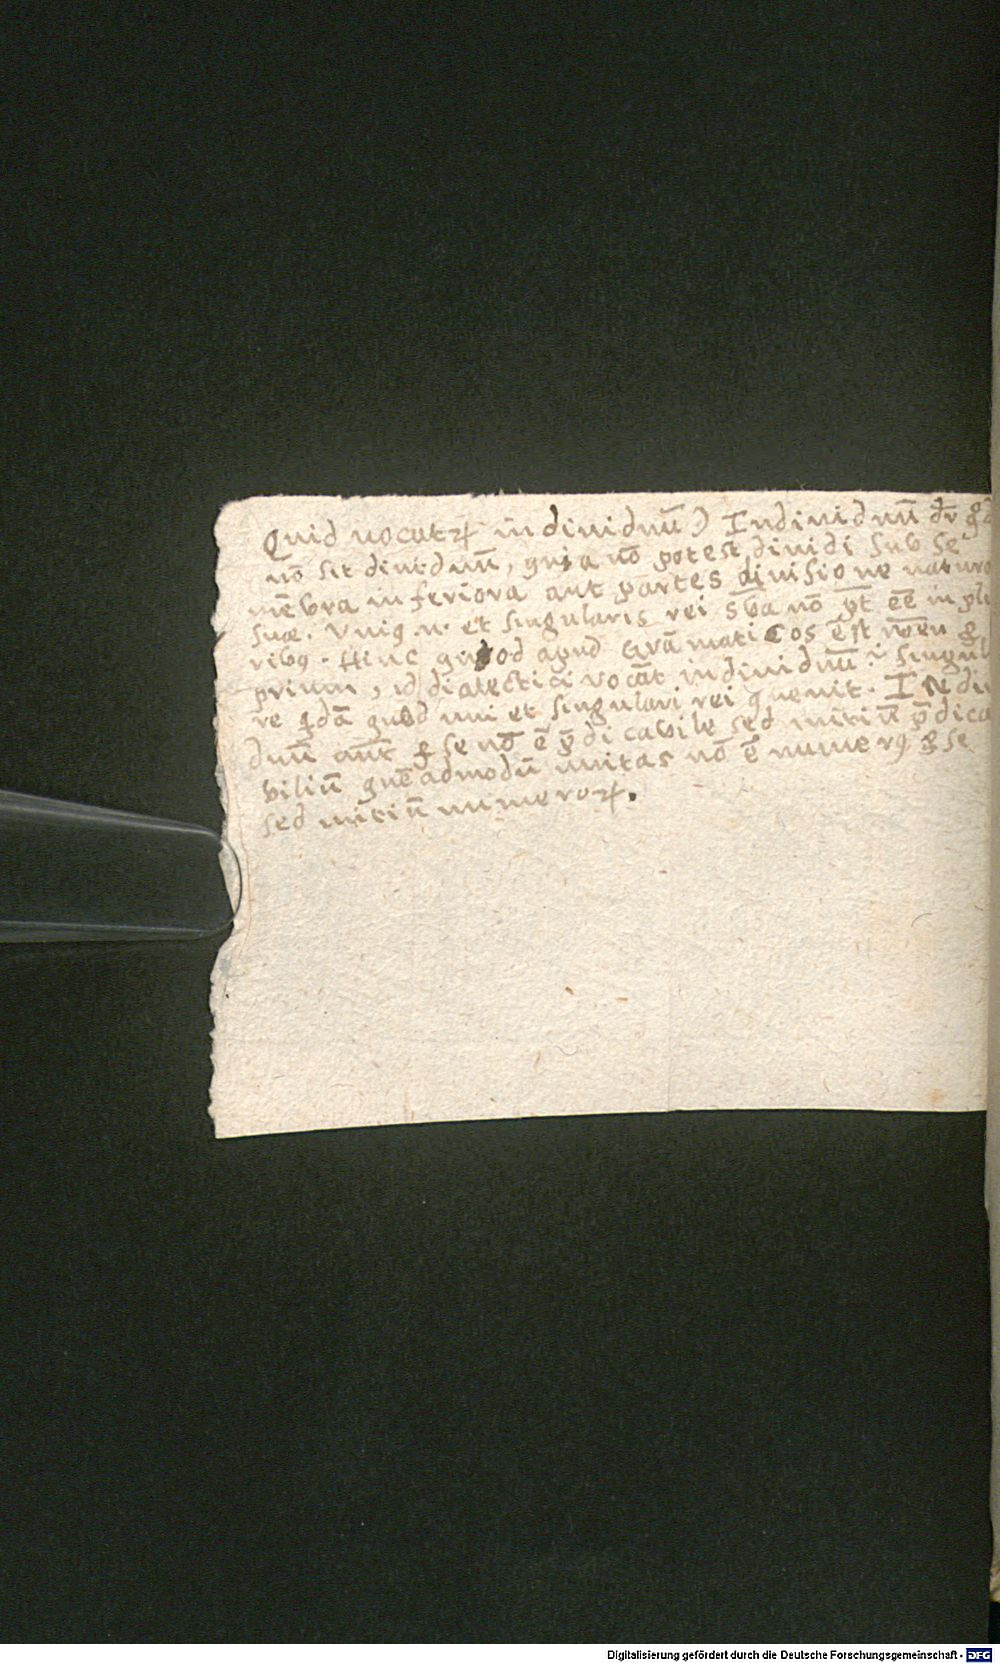 Quid uocatꝛ indiuiduũ) Indiuiduũ dr̃
nõ sit diuiduũ, quia nõ potest diuidi sub se
mẽbra inferiora aut partes diuisione natura
suae. Vniꝰ .n. et singularis rei sb̃a nõ pt̃ eẽ in pl
ribꝰ. Hinc quod apud Grãmaticos est nomẽn ꝓ
prium, id dialectici vocãt indiuiduũ .i. singul
re qdã quod uni et singulari rei ꝯuenit. Indiui
duũ aũt ꝑ se nõ ẽ p̃dicabile sed initiũ p̃dica
biliũ quẽadmodũ unitas nõ ẽ numerꝰ ꝑ se
sed initiũ numeroꝝ.
Digitalisierung gefördert durch die Deutsche Forschungsgemeinschaft - DFG